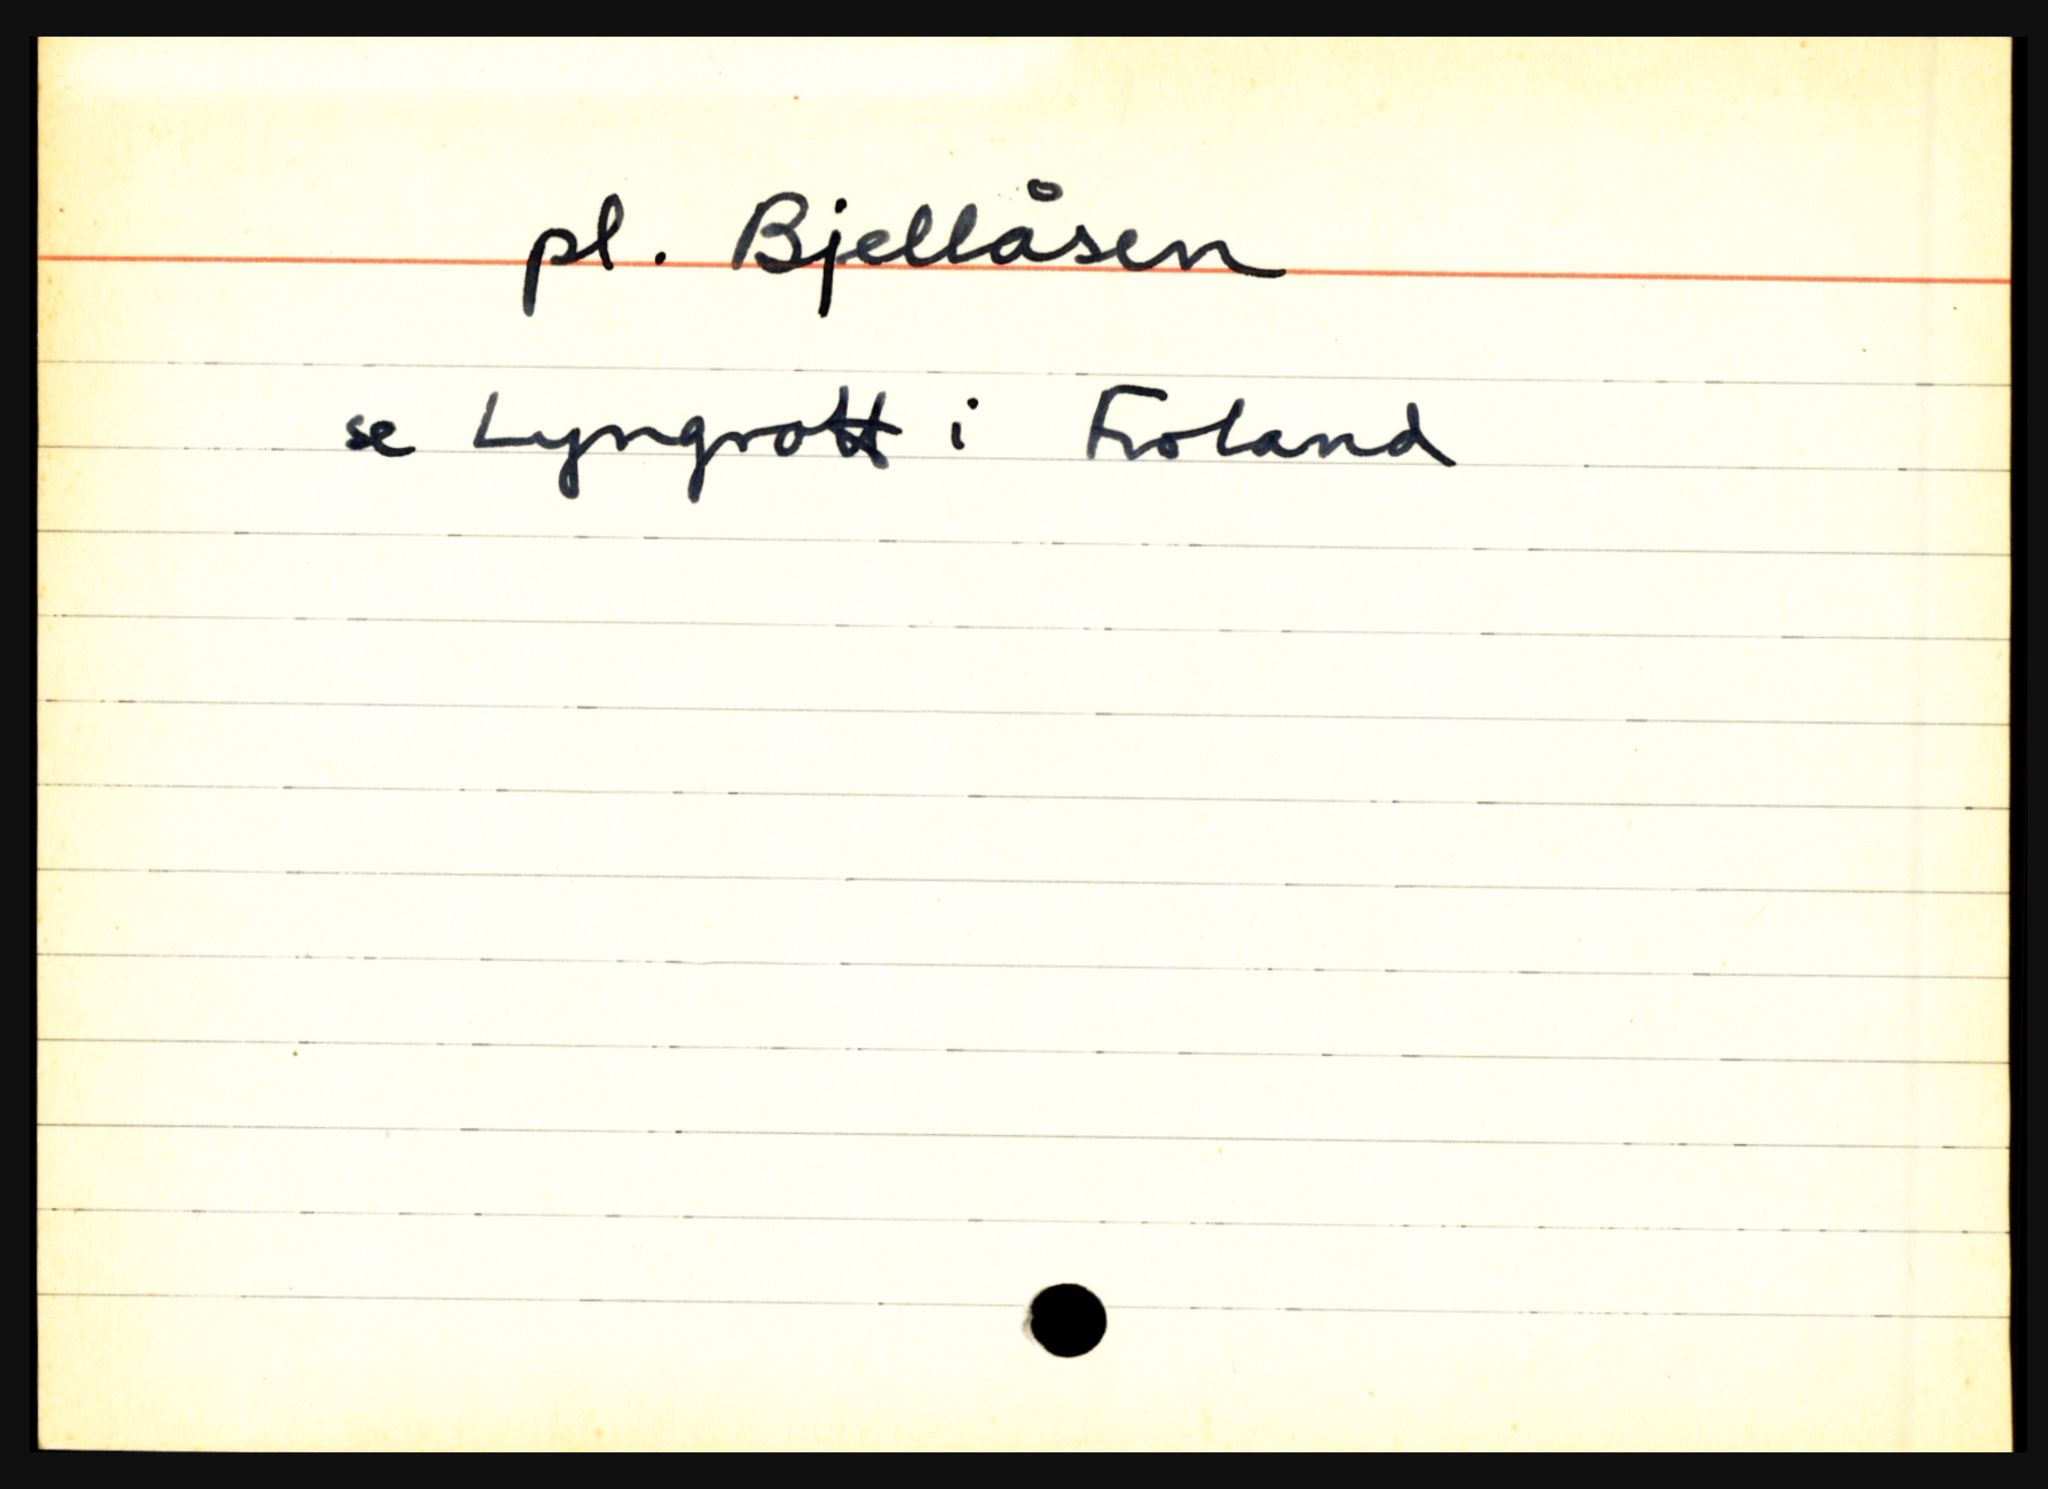 pl. Bjellåsen
se Lyngrott i Froland